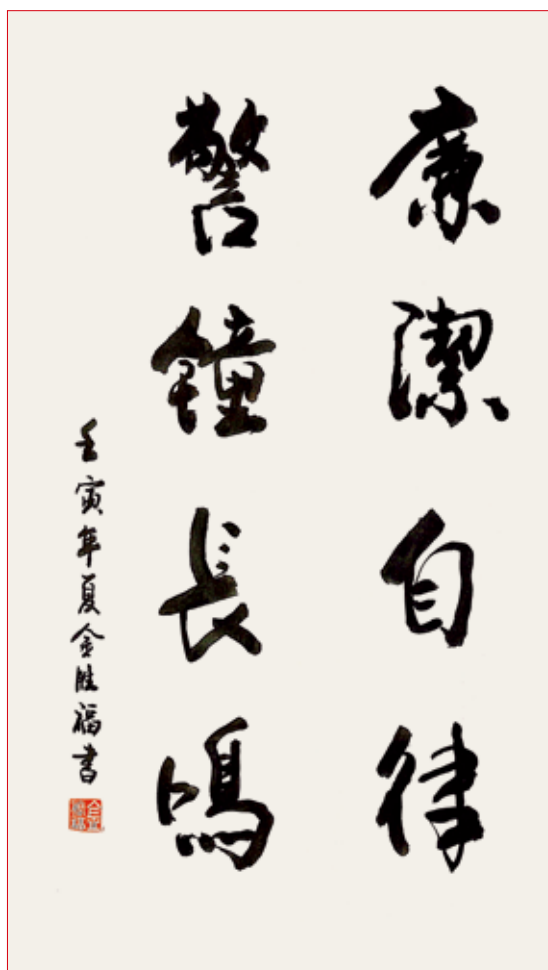 廉潔自律
警鐘長鳴
壬寅年夏金胜福書